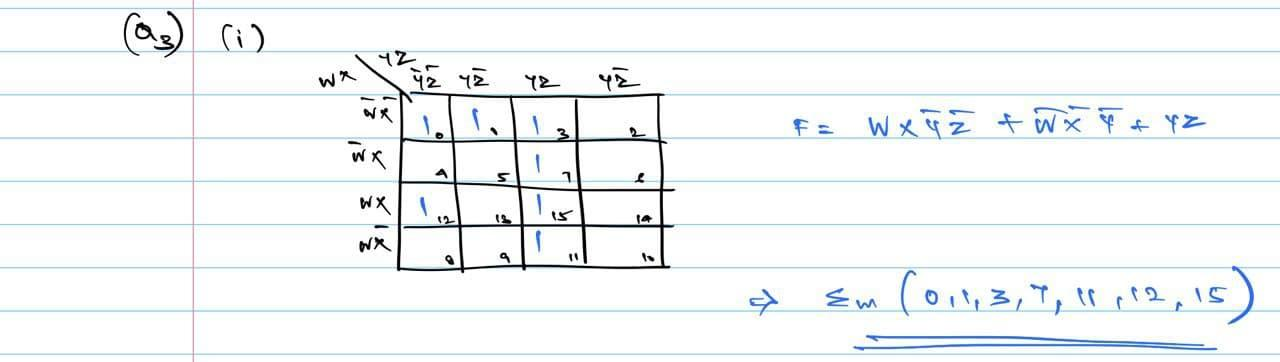 (Q3) (i)
YZ
WX
Y̅Z̅ YZ̅ YZ YZ̅
W̅X̅ 1 0 1 1 1 3 2
W̅X 4 5 1 7 6
WX 1 12 13 1 15 14
WX̅ 8 9 1 11 10
F = WXY̅Z̅ + W̅X̅Y̅ + YZ
⇒ Σm (0,1,3,7,11,12,15)